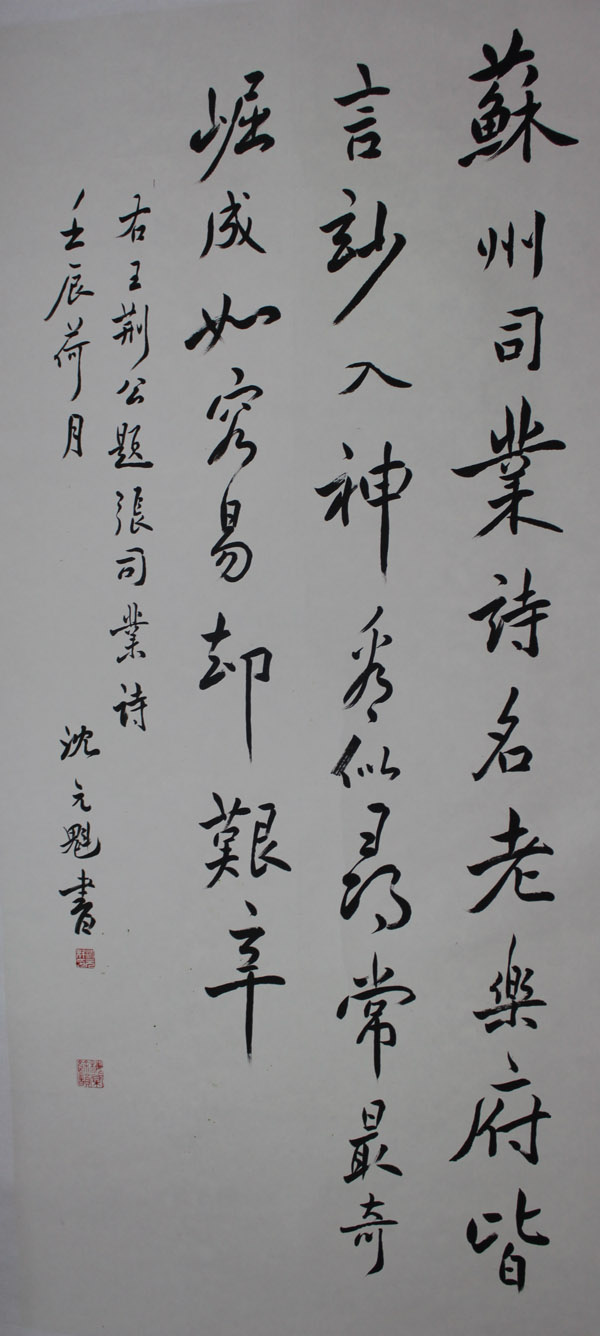 蘇州司業詩名老樂府皆
言玅入神看似尋常最奇
崛成如容易却艱辛
右王荆公題張司業詩
壬辰荷月
沈元魁書